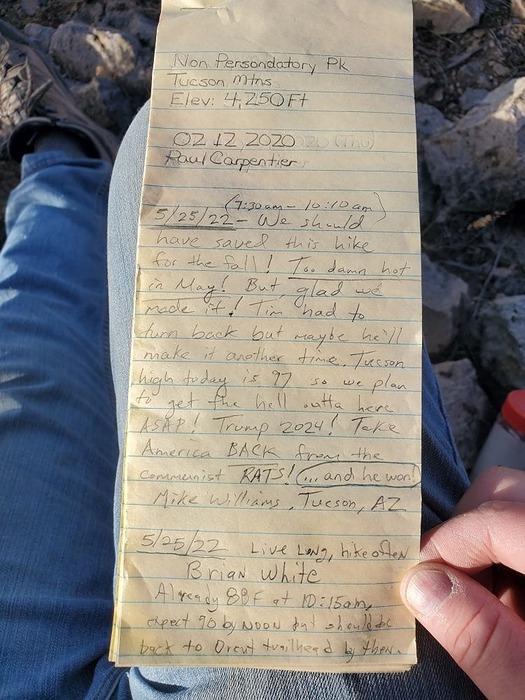 Non Persondatory Pk
Tucson Mtns
Elev: 4,250 Ft
02 12 2020
Paul Carpentier
(7:30am - 10:10am)
5/25/22 - We should
have saved this hike
for the fall! Too damn hot
in May! But, glad we
made it! Tim had to
turn back but maybe he'll
make it another time. Tucson
high today is 97 so we plan
to get the hell outta here
ASAP! Trump 2024! Take
America BACK from the
communist RATS! (...and he won!)
Mike Williams, Tucson, AZ
5/25/22 Live Long, hike often
Brian White
Already 88F at 10:15am,
expect 90 by NOON but should be
back to trailhead by then.